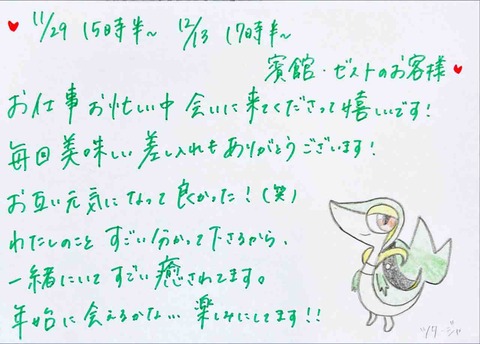 ♥ 11/29 15時半~ 12/13 17時半~
賓館・ゼストのお客様♥
お仕事お忙しい中 会いに来てくださって嬉しいです!
毎回美味しい差し入れもありがとうございます!
お互い元気になって良かった!(笑)
わたしのこと すごい分かって下さるから、
一緒にいてすごい癒されてます。
年始に会えるかな… 楽しみにしてます!!
ツタージャ